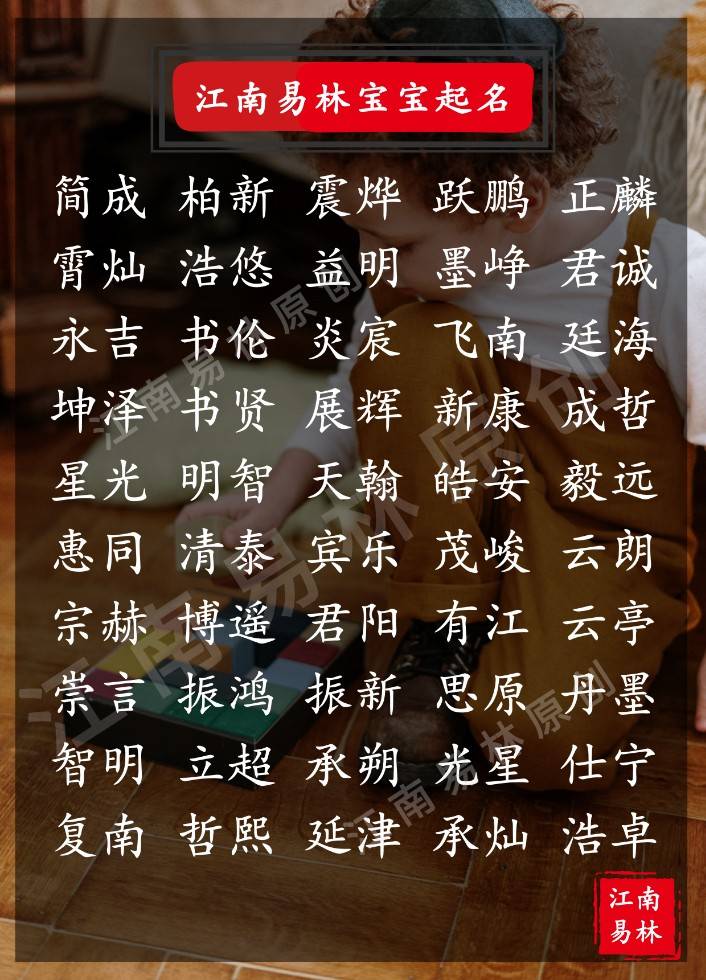 江南易林宝宝起名
简成 柏新 震烨 跃鹏 正麟
霄灿 浩悠 益明 墨峥 君诚
永吉 书伦 炎宸 飞南 廷海
坤泽 书贤 展辉 新康 成哲
星光 明智 天翰 皓安 毅远
惠同 清泰 宾乐 茂峻 云朗
宗赫 博遥 君阳 有江 云亭
崇言 振鸿 振新 思原 丹墨
智明 立超 承朔 光星 仕宁
复南 哲熙 延津 承灿 浩卓
江南易林原创
江南易林原创
江南易林原创
江南
易林